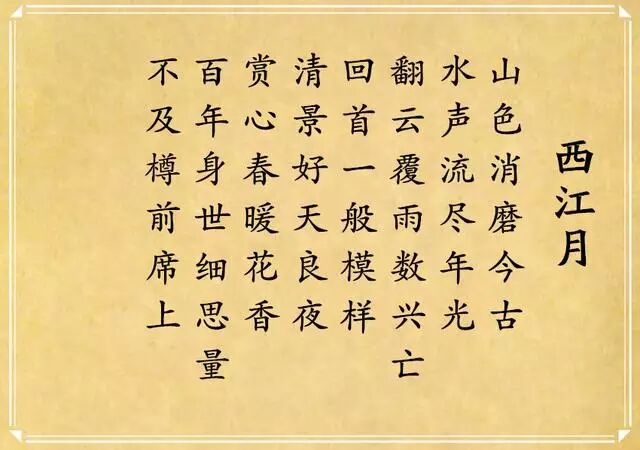 西江月
山色消磨今古
水声流尽年光
翻云覆雨数兴亡
回首一般模样
清景好天良夜
赏心春暖花香
百年身世细思量
不及樽前席上